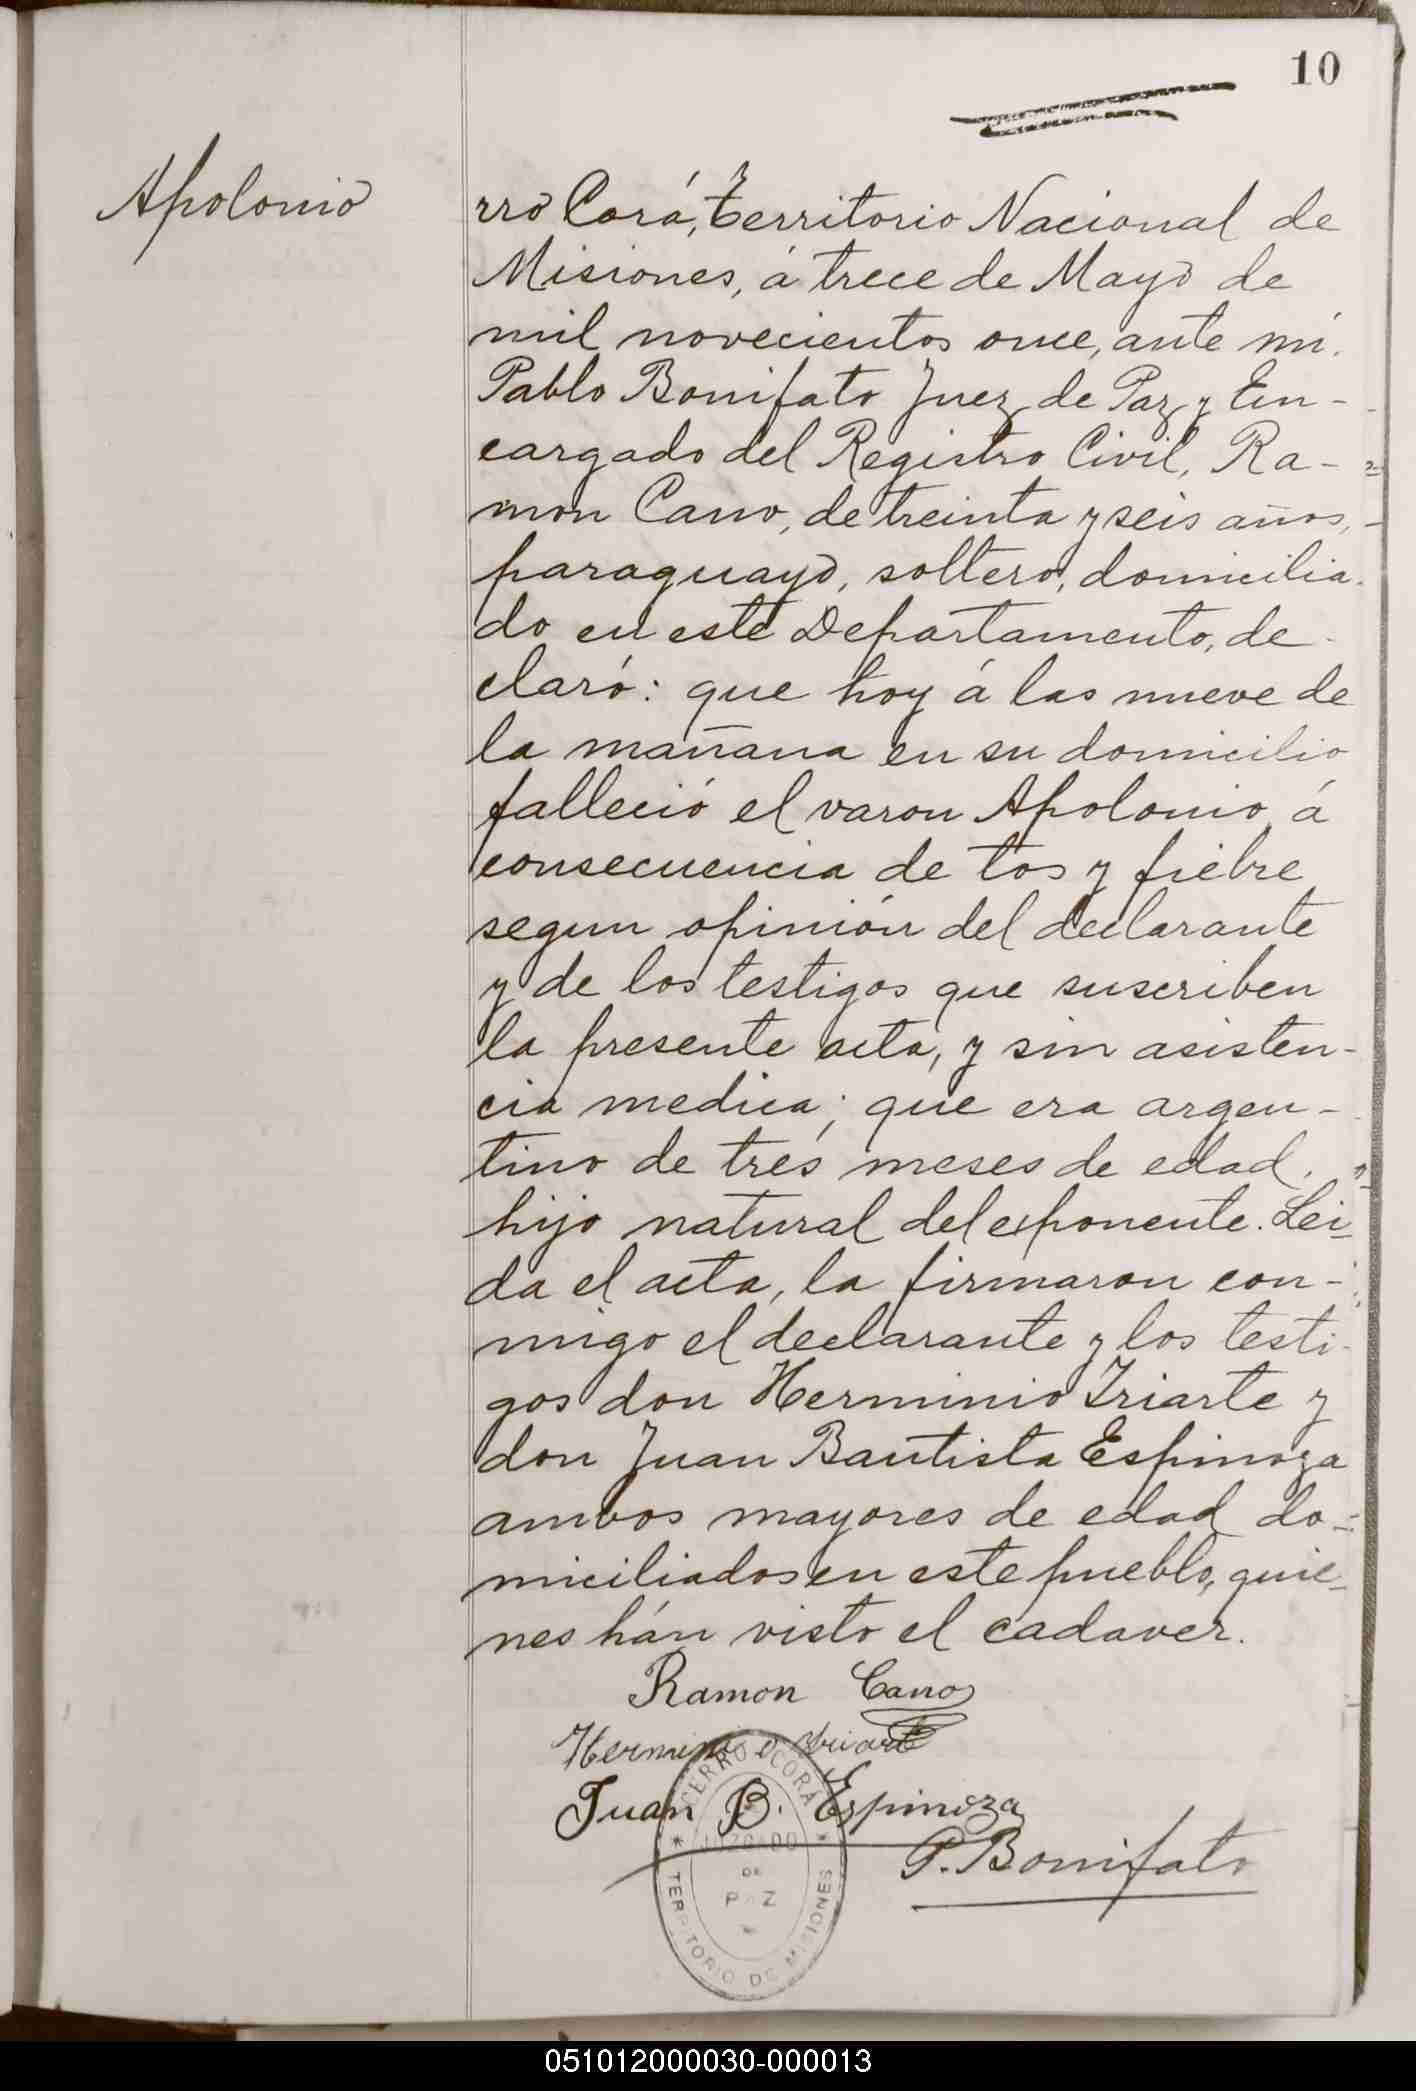 10
Apolonio
rro Corá, Territorio Nacional de
Misiones, á trece de Mayo de
mil novecientos once, ante mí.
Pablo Bonifato Juez de Paz y En-
cargado del Registro Civil, Ra-
mon Cano, de treinta y seis años,
paraguayo, soltero, domicilia-
do en este Departamento, de-
claró: que hoy á las nueve de
la mañana en su domicilio
falleció el varon Apolonio, á
consecuencia de tos y fiebre
segun opinión del declarante
y de los testigos que suscriben
la presente acta, y sin asisten-
cia medica; que era argen-
tino de tres meses de edad,
hijo natural del exponente. Lei-
da el acta, la firmaron con-
migo el declarante y los testi-
gos don Herminio Iriarte y
don Juan Bautista Espinoza
ambos mayores de edad do-
miciliados en este pueblo, quie-
nes hán visto el cadaver.
Ramon Cano
Herminio Iriarte
Juan B. Espinoza
P. Bonifato
CERRO CORÁ
JUZGADO
DE
PAZ
* TERRITORIO DE MISIONES *
051012000030-000013